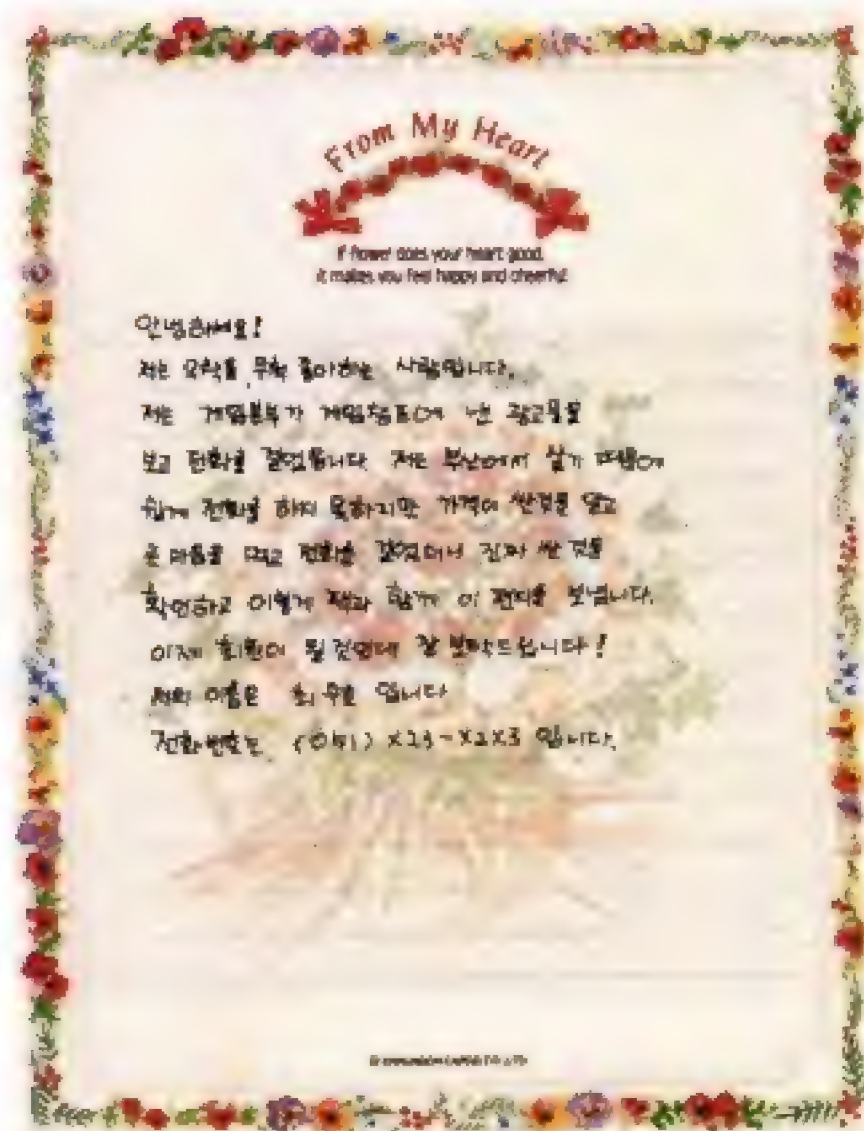 From My Heart
If flower does your heart good,
it makes you feel happy and cheerful
안녕하세요!
저는 오락을 무척 좋아하는 사람입니다.
저는 게임본부가 게임챔프에 낸 광고물을
보고 전화를 걸었습니다. 저는 부산에서 살기 때문에
쉽게 전화를 하지 못하지만 가격이 싼것을 알고
큰 마음을 먹고 전화를 걸었더니 진짜 싼 것을
확인하고 이렇게 팩과 함께 이 편지를 보냅니다.
이제 회원이 될 것인데 잘 부탁드립니다!
저의 이름은 최 입니다
전화번호는 (051) X23-X2X3 입니다.